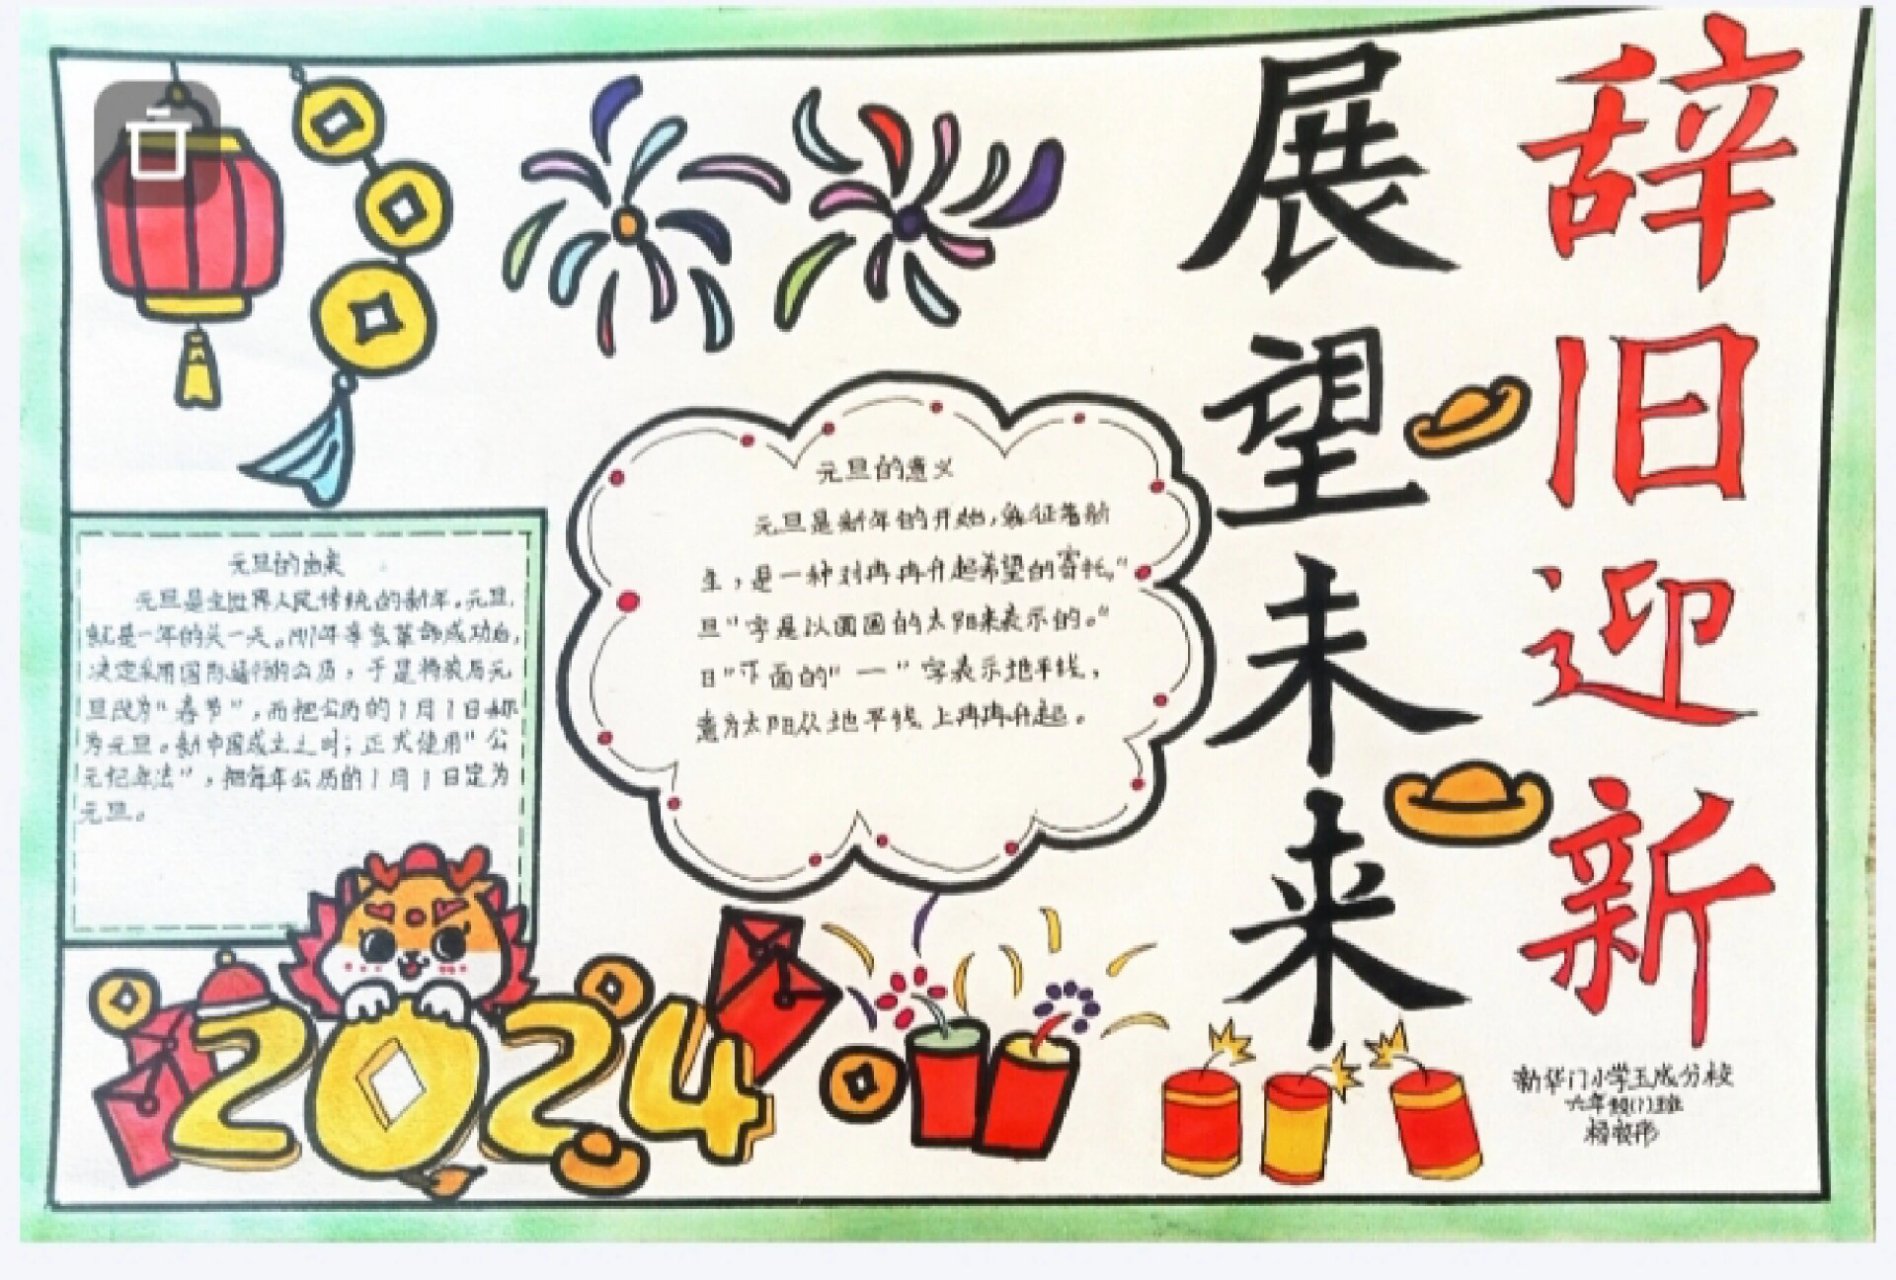 辞旧迎新
展望未来
元旦的由来
元旦是全世界人民传统的新年。元旦
就是一年的头一天。1911年辛亥革命成功后,
决定采用国际通行的公历,于是将农历元
旦改为“春节”,而把公历的1月1日
为元旦。新中国成立之时;正式使用“公
元纪年法”,把每年公历的1月1日定为
元旦。
元旦的意义
元旦是新年的开始,象征着新
生,是一种对冉冉升起希望的寄托。“
旦”字是以圆圆的太阳来表示的。“
日”下面的“一”字表示地平线,
意为太阳从地平线上冉冉升起。
2024
新华门小学玉成分校
六年级(1)班